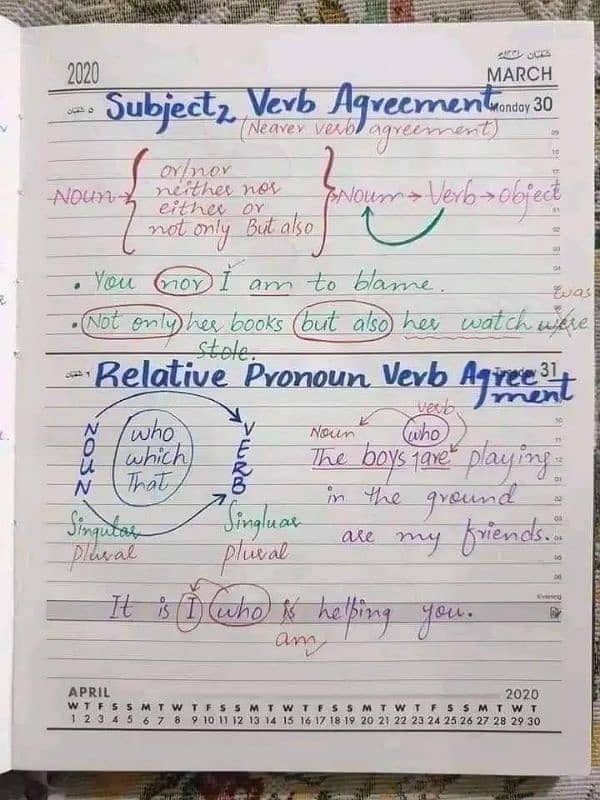 2020
MARCH
Monday 30
Subject, Verb Agreement
(Nearer verb agreement)
Noun → { or/nor
neither nor
either or
not only But also } → Noun → Verb → object
• You nor I am to blame.
• Not only her books but also her watch were was
stole.
31
Relative Pronoun Verb Agree
ment
NOUN
who
which
That
VERB
Singular
plural
Singluar
plural
verb
Noun who
The boys are playing
in the ground
are my friends.
Evening
It is I who is helping you.
am
APRIL 2020
W T F S S M T W T F S S M T W T F S S M T W T F S S M T W T
1 2 3 4 5 6 7 8 9 10 11 12 13 14 15 16 17 18 19 20 21 22 23 24 25 26 27 28 29 30